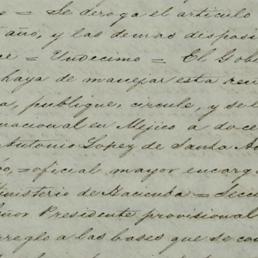 = Se deroga el artículo
año, y las demas disposi
ce = Undecimo = El Gob
haya de manejar esta ren
a, publique, circule, y se
nacional en Mejico a doce
Antonio Lopez de Santa A
o, = oficial mayor encarg
Ministerio de Hacienda = Secc
or Presidente provisional
rreglo a las bases que se co